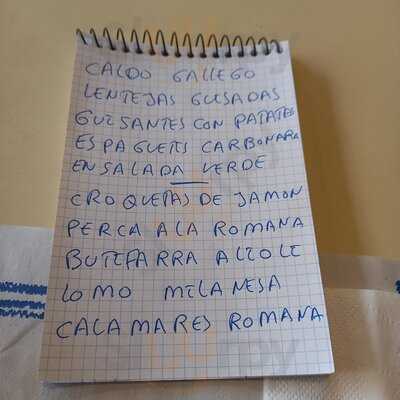 CALDO GALLEGO
LENTEJAS GUSADAS
GUISANTES CON PATATES
ESPAGUETIS CARBONARA
ENSALADA VERDE
CROQUETAS DE JAMON
PERCA A LA ROMANA
BUTIFARRA ALIOLI
LOMO MILANESA
CALAMARES ROMANA